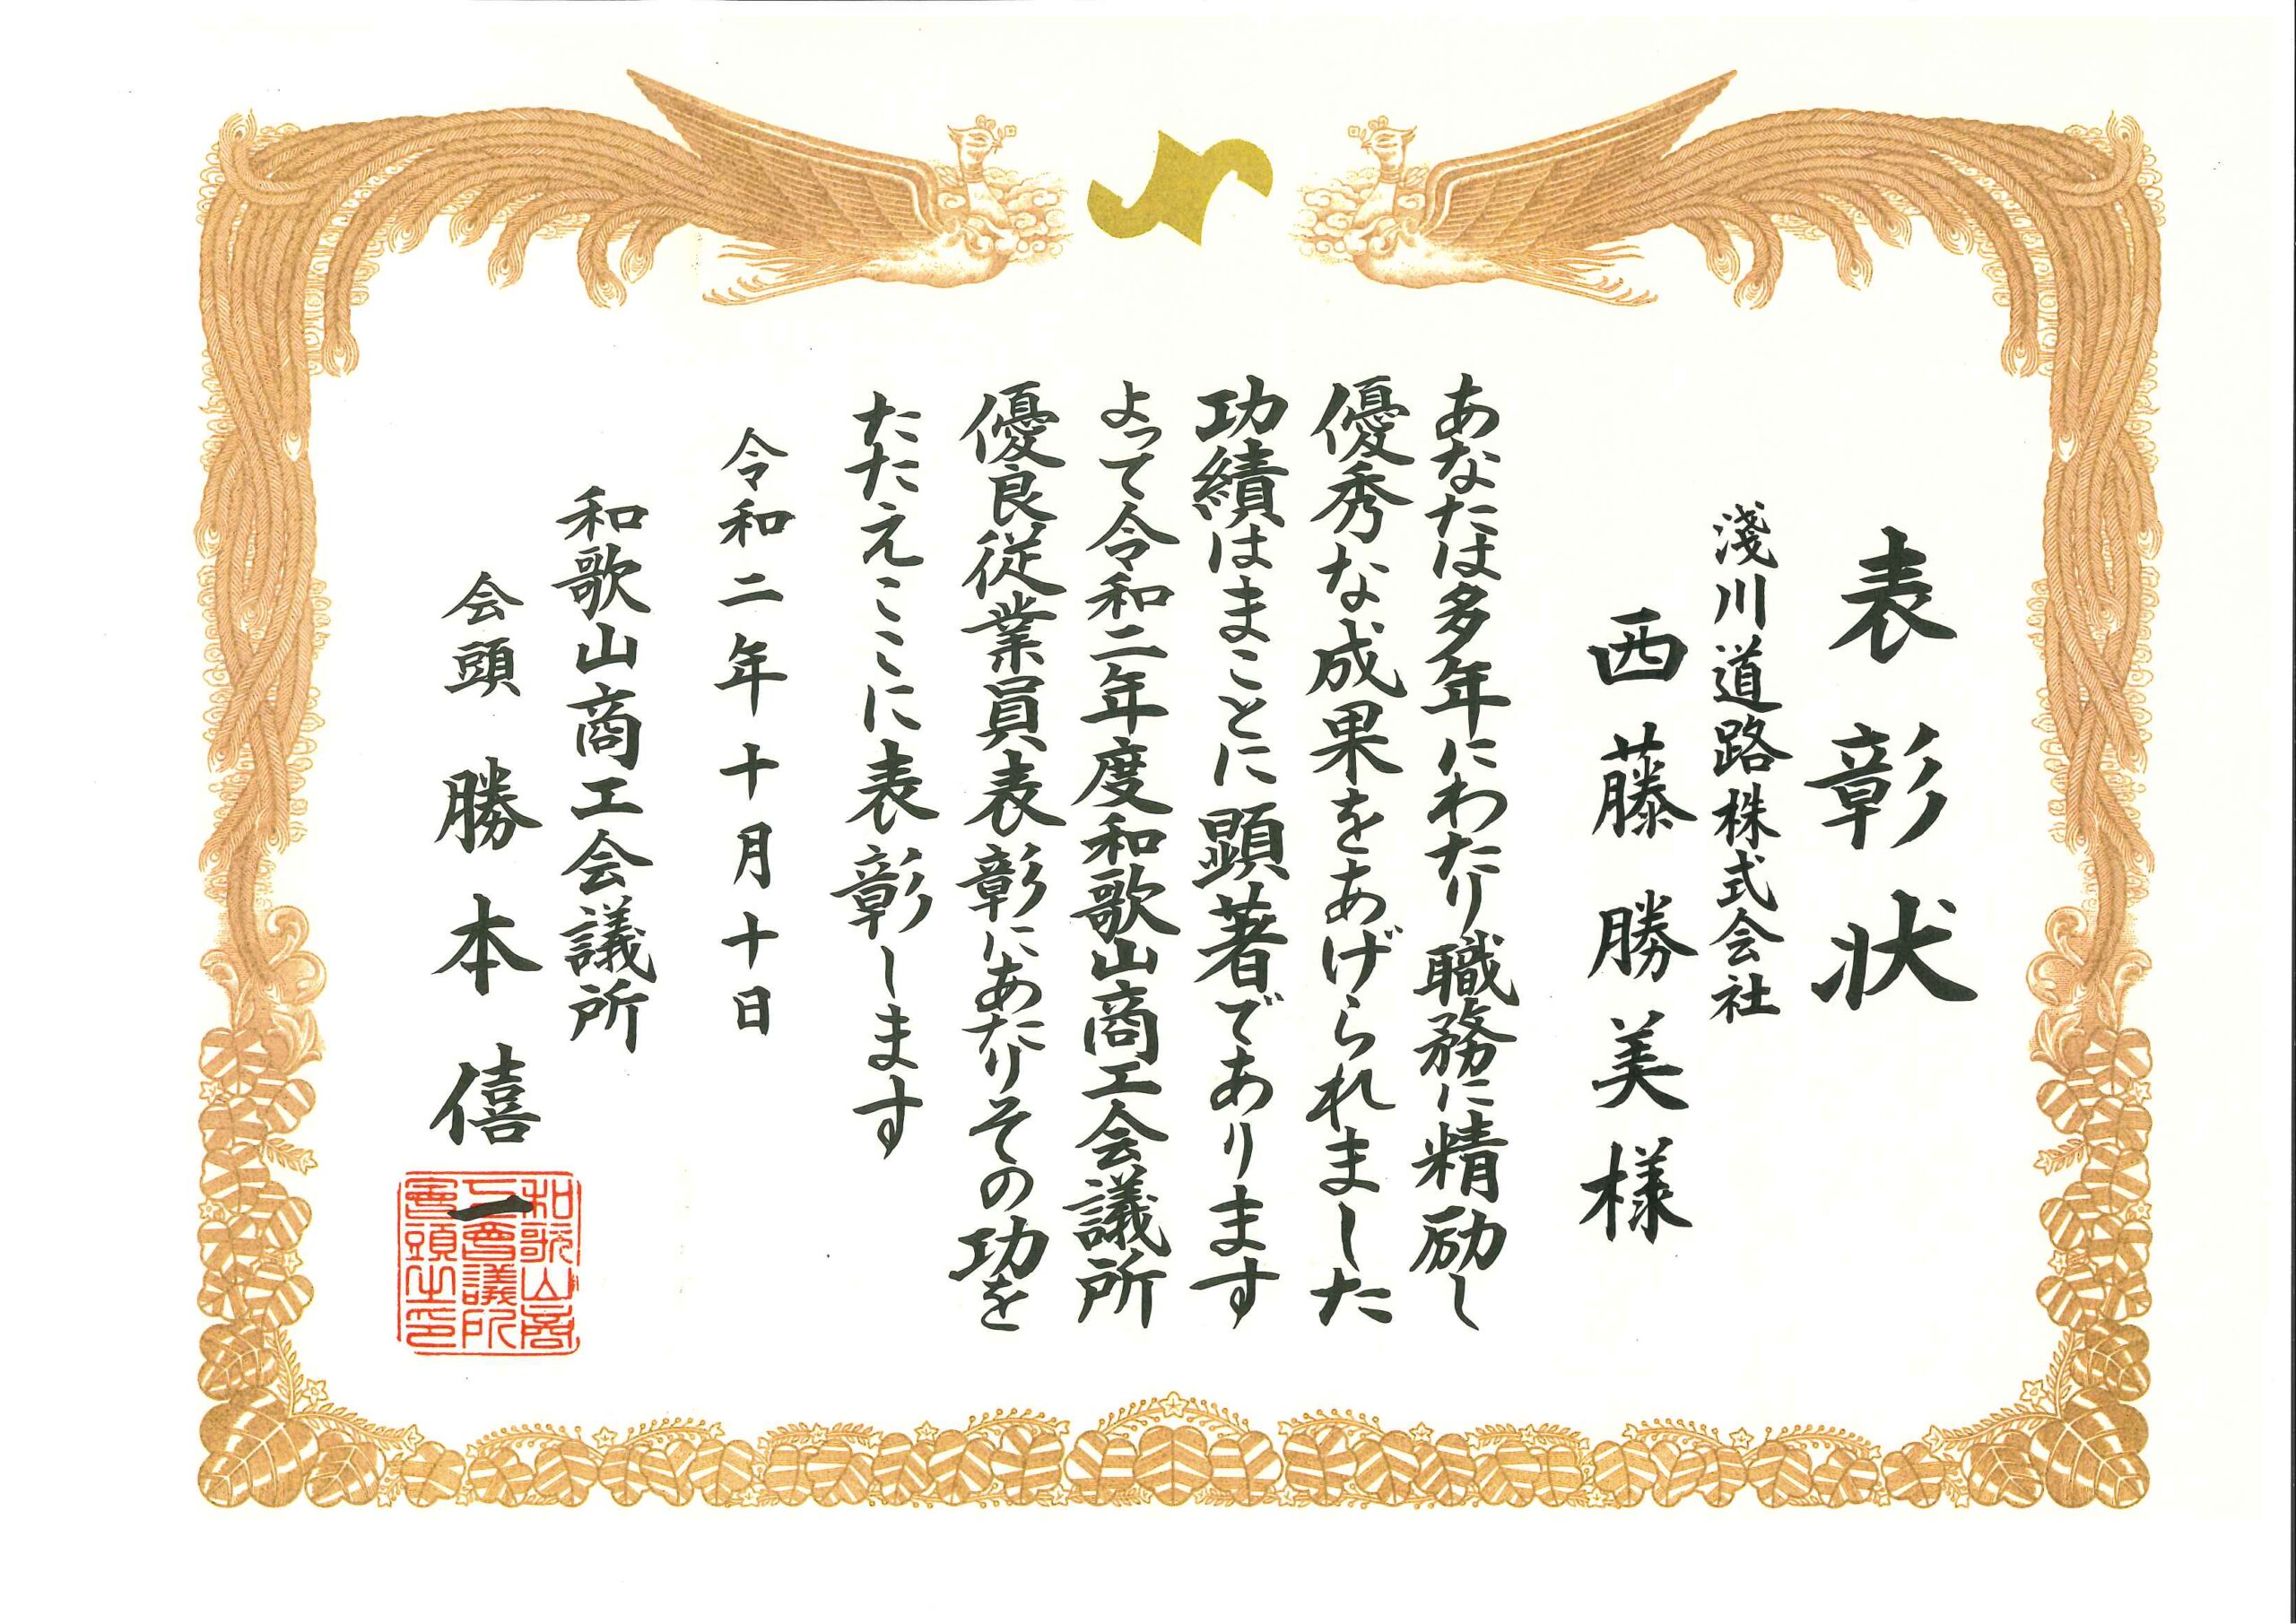 表彰状
淺川道路株式会社
西藤勝美様
あなたは多年にわたり職務に精励し
優秀な成果をあげられました
功績はまことに顕著であります
よって令和二年度和歌山商工会議所
優良従業員表彰にあたりその功を
たたえここに表彰します
令和二年十月十日
和歌山商工会議所
会頭 勝本僖一
和歌山商
工會議所
會頭之印